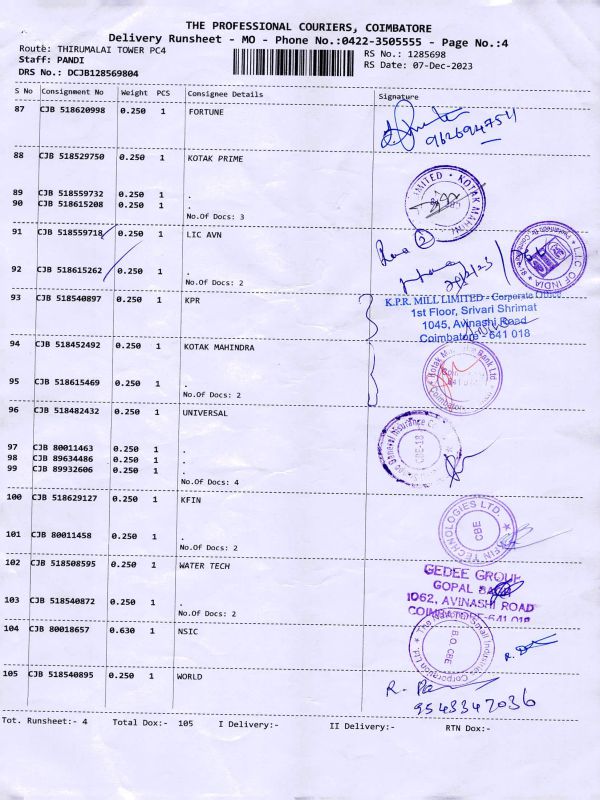 THE PROFESSIONAL COURIERS, COIMBATORE
Delivery Runsheet - MO - Phone No.:0422-3505555 - Page No.:4
Route: THIRUMALAI TOWER PC4
RS No.: 1285698
Staff: PANDI
RS Date: 07-Dec-2023
DRS No.: DCJB128569804
S No Consignment No Weight PCS Consignee Details Signature
87 CJB 518620998 0.250 1 FORTUNE
9626944754
88 CJB 518529750 0.250 1 KOTAK PRIME
89 CJB 518559732 0.250 1 .
90 CJB 518615208 0.250 1 .
No.Of Docs: 3
91 CJB 518559718 0.250 1 LIC AVN
L.I.C OF INDIA
92 CJB 518615262 0.250 1 .
No.Of Docs: 2
93 CJB 518540897 0.250 1 KPR
K.P.R. MILL LIMITED - Corporate Office
1st Floor, Srivari Shrimat
1045, Avinashi Road
Coimbatore - 641 018
94 CJB 518452492 0.250 1 KOTAK MAHINDRA
Kotak Mahindra Bank Ltd
95 CJB 518615469 0.250 1 .
No.Of Docs: 2
96 CJB 518482432 0.250 1 UNIVERSAL
General Insurance
CBE-18
97 CJB 80011463 0.250 1 .
98 CJB 89634486 0.250 1 .
99 CJB 89932606 0.250 1 .
No.Of Docs: 4
100 CJB 518629127 0.250 1 KFIN
KFIN TECHNOLOGIES LTD.
CBE
101 CJB 80011458 0.250 1 .
No.Of Docs: 2
102 CJB 518508595 0.250 1 WATER TECH
GEDEE GROUP
GOPAL BAGH
1062, AVINASHI ROAD
COIMBATORE-641 018
103 CJB 518540872 0.250 1 .
No.Of Docs: 2
104 CJB 80018657 0.630 1 NSIC
The National Small Industries Corporation Ltd.
B.O. CBE
105 CJB 518540895 0.250 1 WORLD
9543347036
Tot. Runsheet:- 4 Total Dox:- 105 I Delivery:- II Delivery:- RTN Dox:-